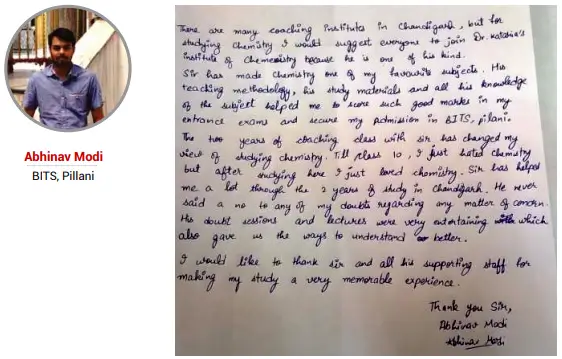 Abhinav Modi
BITS, Pillani
There are many coaching institutes in Chandigarh, but for
studying Chemistry I would suggest everyone to join Dr. Katadia's
institute of Chemeistry because he is one of his kind.
Sir has made Chemistry one of my favourite subjects. His
teaching methodology, his study materials and all his knowledge
of the subject helped me to score such good marks in my
entrance exams and secure my Admission in BITS, pilani.
The two years of coaching class with sir has changed my
view of studying chemistry. Till class 10, I just hated chemistry
but after studying here I just loved chemistry. Sir has helped
me a lot through the 2 years of study in Chandigarh. He never
said a no to any of my doubts regarding any matter of concern.
His doubt sessions and lectures were very entertaining which
also gave us the ways to understand better.
I would like to thank sir and all his supporting staff for
making my study a very memorable experience.
Thank you Sir,
Abhinav Modi
Abhinav Modi